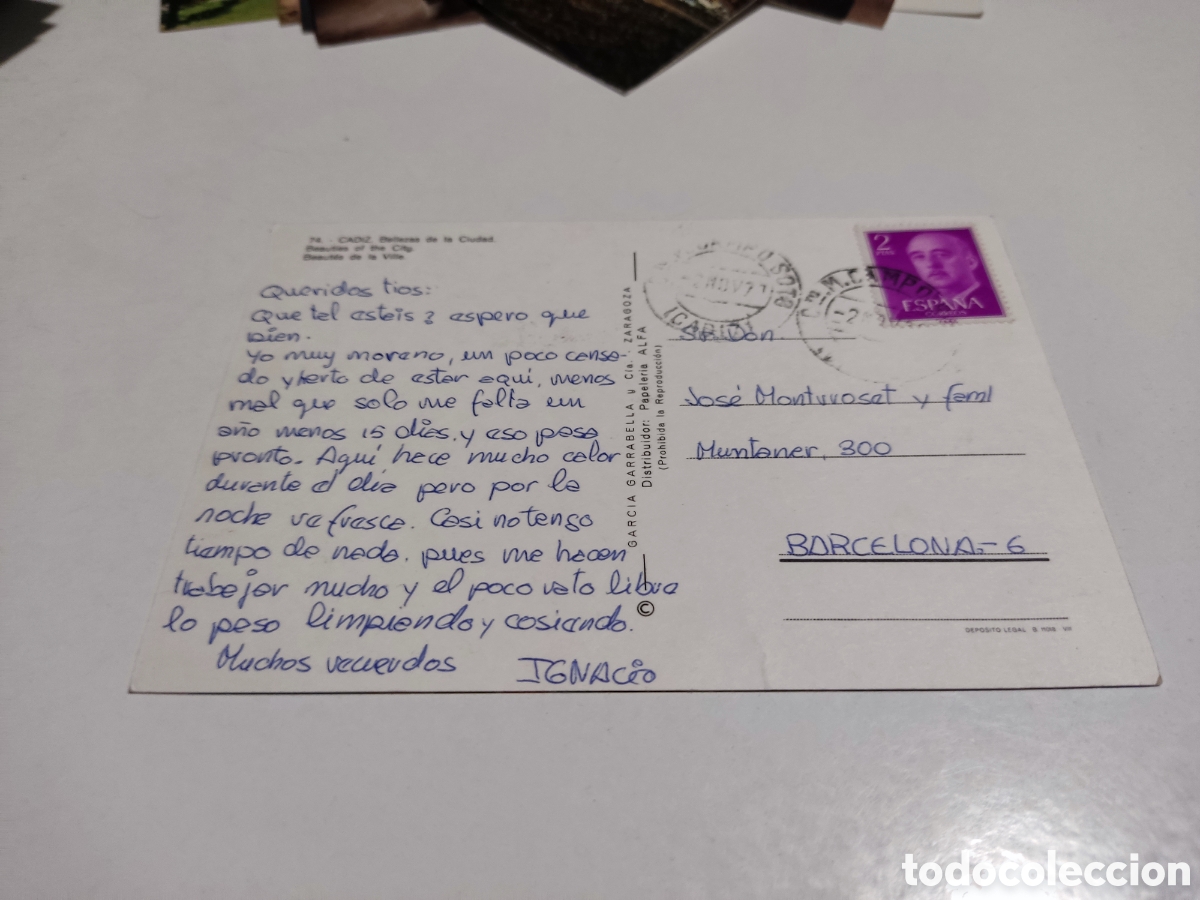 74. - CADIZ. Bellezas de la Ciudad.
Beauties of the City.
Beautés de la Ville.
Queridos tios:
Que tel esteis? espero que
bien.
Yo muy moreno, un poco cansa-
do y herto de ester aqui, menos
mal que solo me falta un
año menos 15 dias, y eso pasa
pronto. Aqui, hece mucho calor
durante el dia pero por la
noche refresca. Casi no tengo
tiempo de nada, pues me hacen
trabajar mucho y el poco rato libre
lo paso limpiando y cosiendo.
Muchos recuerdos IGNACIO
GARCIA GARRABELLA y Cía. - ZARAGOZA
Distribuidor: Papelería ALFA
(Prohibida la Reproducción)
©
CAMPO SOTO
-2 NOV 7
(CADIZ)
M. CAMPO
-2
2
PTAS
ESPAÑA
CORREOS
Sr. Don.
José Montvroset y faml
Muntaner, 300
BARCELONA-6
DEPOSITO LEGAL B.
todocoleccion